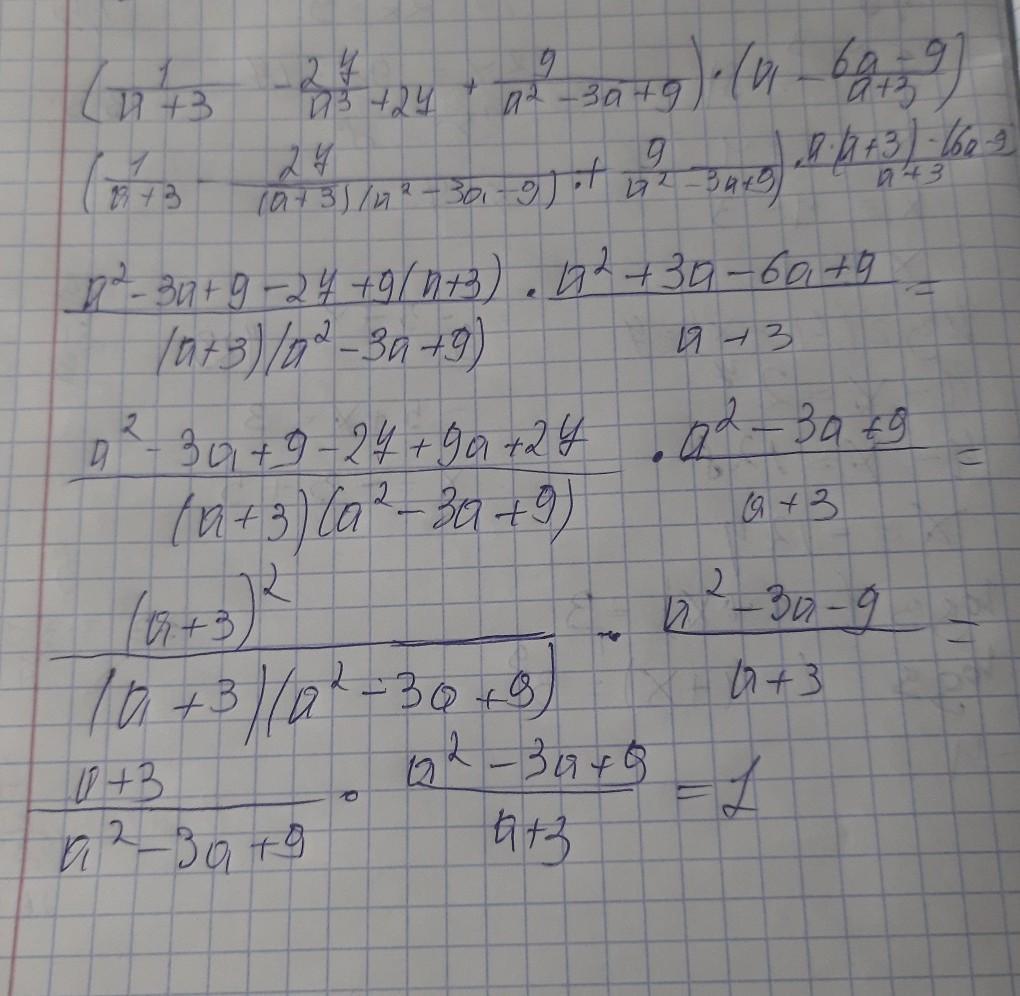 (1/(a+3) - 27/(a³+27) + 9/(a²-3a+9)) · (a - (6a-9)/(a+3))
(1/(a+3) - 27/((a+3)(a²-3a-9)) + 9/(a²-3a+9)) · (a·(a+3)-(6a-9))/(a+3)
(a²-3a+9-27+9(a+3))/((a+3)(a²-3a+9)) · (a²+3a-6a+9)/(a+3) =
(a²-3a+9-27+9a+27)/((a+3)(a²-3a+9)) · (a²-3a+9)/(a+3) =
(a+3)²/((a+3)(a²-3a+9)) · (a²-3a-9)/(a+3) =
(a+3)/(a²-3a+9) · (a²-3a+9)/(a+3) = 1